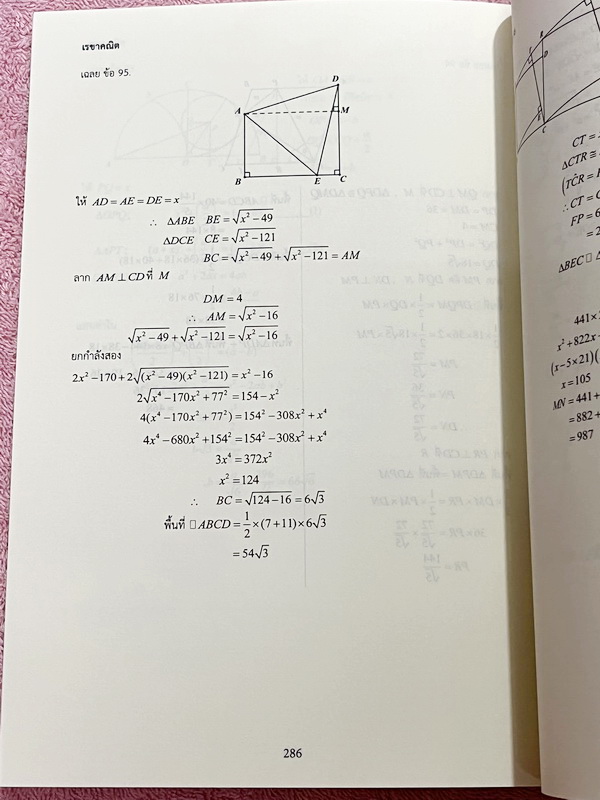 เรขาคณิต
เฉลย ข้อ 95.
D
A
M
B
E
C
ให้ AD = AE = DE = x
∴ ΔABE BE = √(x² − 49)
ΔDCE CE = √(x² − 121)
BC = √(x² − 49) + √(x² − 121) = AM
ลาก AM ⊥ CD ที่ M
DM = 4
∴ AM = √(x² − 16)
√(x² − 49) + √(x² − 121) = √(x² − 16)
ยกกำลังสอง
2x² − 170 + 2√((x² − 49)(x² − 121)) = x² − 16
2√(x⁴ − 170x² + 77²) = 154 − x²
4(x⁴ − 170x² + 77²) = 154² − 308x² + x⁴
4x⁴ − 680x² + 154² = 154² − 308x² + x⁴
3x⁴ = 372x²
x² = 124
∴ BC = √(124 − 16) = 6√3
พื้นที่ □ABCD = 1/2 × (7 + 11) × 6√3
= 54√3
286
CT =
ΔCTR ≅
∴ CT =
FP = 6
= 2
ΔBEC
441 × 2
x² + 822x
(x − 5 × 21)(
x = 105
MN = 441 +
= 882 +
= 987